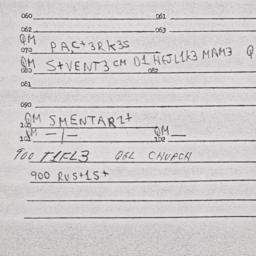 060 061
062 063
QM
070 PA,C+3RK3S
QM S+VENT3CM D1 HEJL1K3 MAM3 Q
080 082
081
090
QM SMENTAR2+
100
QM —|— QM —
101 102
900 T1FL3 QEL CHURCH
900 RUS+1S+